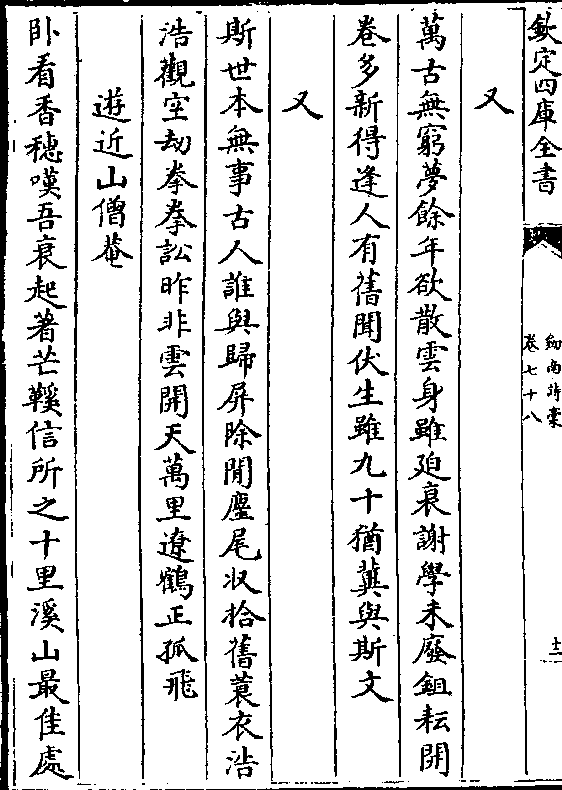 欽定四庫全書
劒南詩稾
卷七十八
十二
又
萬古無窮夢餘年欲散雲身雖廹衰謝學未廢鉏耘開
卷多新得逢人有舊聞伏生雖九十猶冀與斯文
又
斯世本無事古人誰與歸屏除閒麈尾收拾舊蓑衣浩
浩觀空劫拳拳訟昨非雲開天萬里遼鶴正孤飛
遊近山僧菴
卧看香穗嘆吾衰起著芒鞵信所之十里溪山最佳處